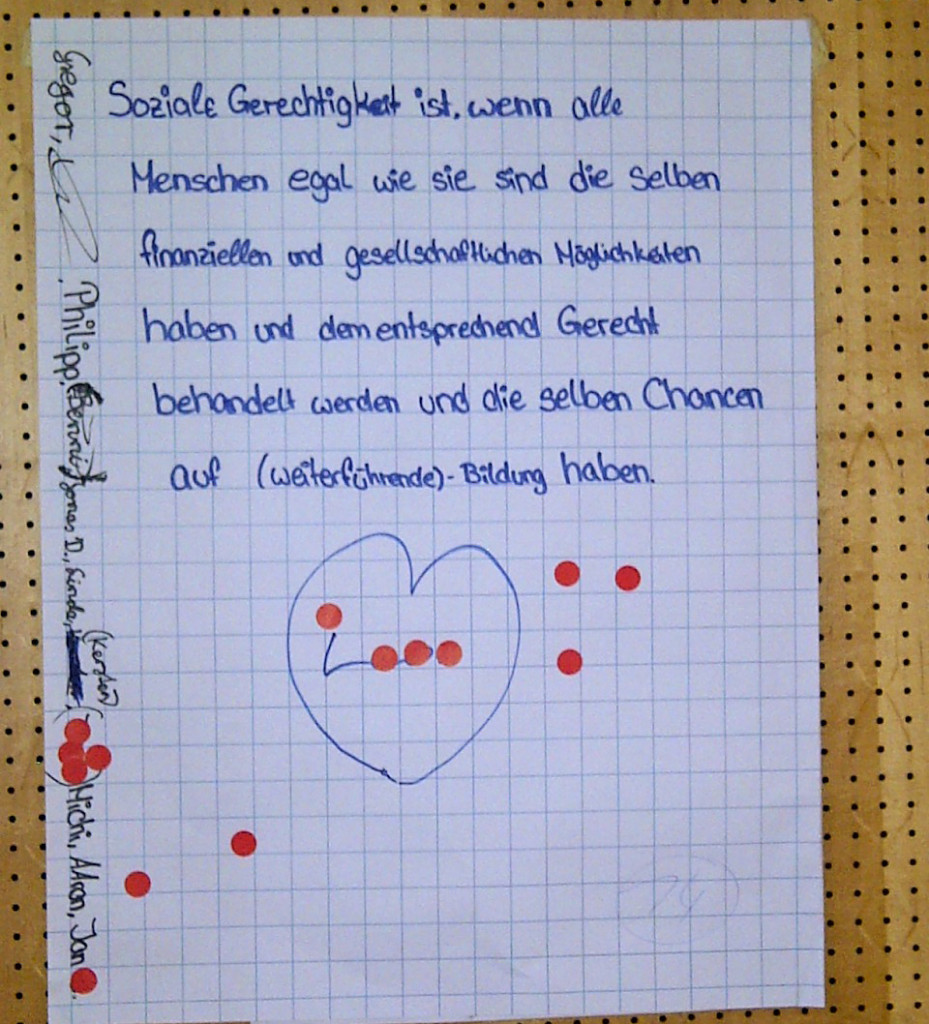 Soziale Gerechtigkeit ist, wenn alle
Menschen egal wie sie sind die selben
finanziellen und gesellschaftlichen Möglichkeiten
haben und dementsprechend Gerecht
behandelt werden und die selben Chancen
auf (weiterführende)-Bildung haben.
Gregor, Philipp, Jonas D., Linda,
(Kerstin)
Michi, Aaron, Jan
24